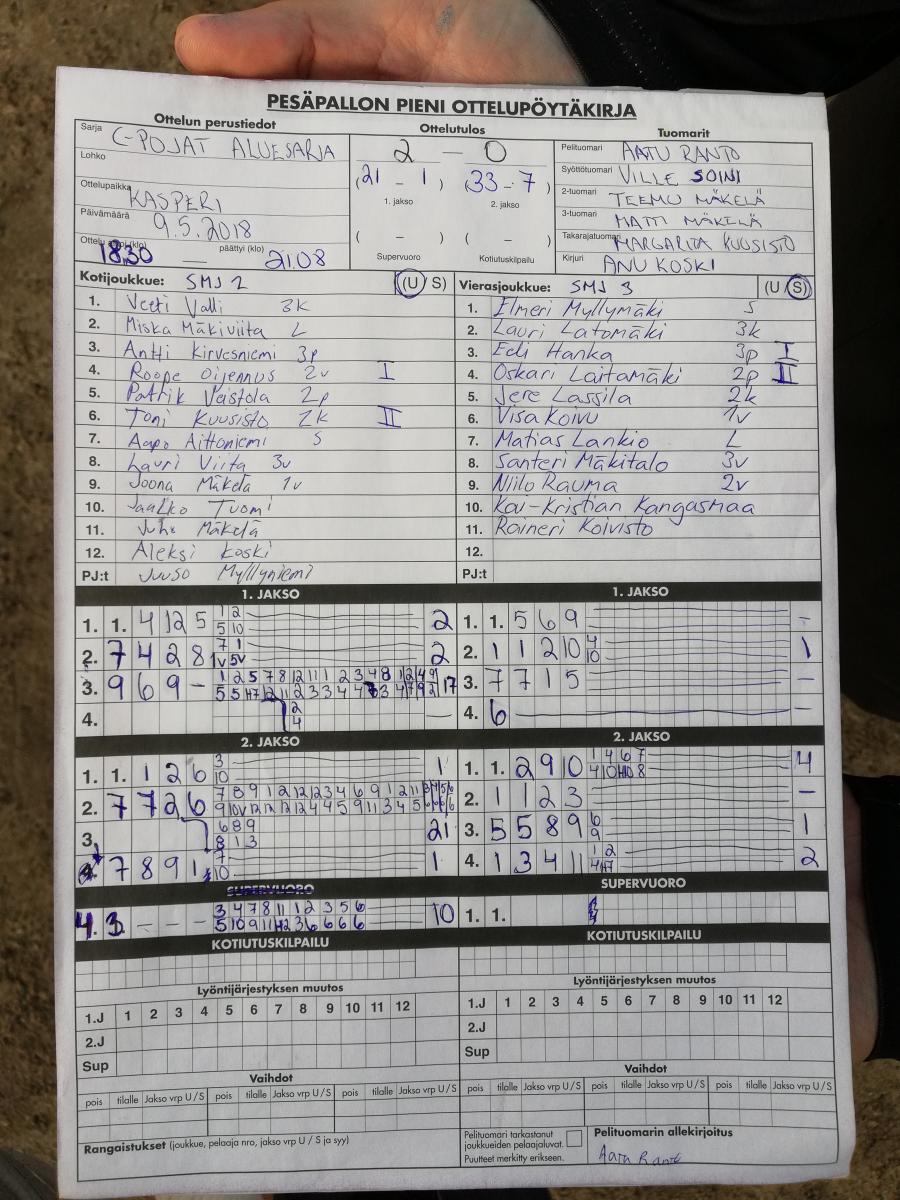 PESÄPALLON PIENI OTTELUPÖYTÄKIRJA
Ottelun perustiedot
Ottelutulos
Tuomarit
Sarja C-POJAT ALUESARJA
Lohko
Ottelupaikka KASPERI
Päivämäärä 9.5.2018
Ottelu alkoi (klo) 18.30 — päättyi (klo) 21.08
2 — 0
(21 - 1) (33 - 7)
1. jakso 2. jakso
( - ) ( - )
Supervuoro Kotiutuskilpailu
Pelituomari AATU RANTO
Syöttötuomari VILLE SOINI
2-tuomari TEEMU MÄKELÄ
3-tuomari MATTI MÄKELÄ
Takarajatuomari MARGARITA KUUSISTO
Kirjuri ANU KOSKI
Kotijoukkue: SMJ 2 (U/S)
1. Veeti Valli 3k
2. Miska Mäkiviita L
3. Antti Kirvesniemi 3p
4. Roope Oijennus 2v I
5. Patrik Veistola 2p
6. Toni Kuusisto 2k II
7. Aapo Aittoniemi S
8. Lauri Viita 3v
9. Joona Mäkelä 1v
10. Jaakko Tuomi
11. Juho Mäkelä
12. Aleksi Koski
PJ:t Juuso Myllyniemi
Vierasjoukkue: SMJ 3 (U/S)
1. Elmeri Myllymäki S
2. Lauri Latomäki 3k
3. Eeli Hanka 3p I
4. Oskari Laitamäki 2p II
5. Jere Lassila 2k
6. Visa Koivu 1v
7. Matias Lankio L
8. Santeri Mäkitalo 3v
9. Niilo Rauma 2v
10. Kai-Kristian Kangasmaa
11. Raineri Koivisto
12.
PJ:t
1. JAKSO
1. 1. 4 12 5 1 2 2
5 10
2. 7 4 2 8 7 1 2
1v 5v
3. 9 6 9 - 17
4. 2 —
4
1. JAKSO
1. 1. 5 6 9 -
2. 1 1 2 10 4 1
10
3. 7 7 1 5 -
4. 6 -
2. JAKSO
1. 1. 1 2 6 3 1
10
2. 7 7 2 6
3. 6 8 9 21
8 1 3
7 8 9 1 7 1
10
2. JAKSO
1. 1. 2 9 10 1 4 6 7 4
2. 1 1 2 3 -
3. 5 5 8 9 6 1
9
4. 1 3 4 11 1 2 2
SUPERVUORO
4. 3 - - - 3 4 7 8 11 1 2 3 5 6 10
SUPERVUORO
1. 1.
KOTIUTUSKILPAILU
KOTIUTUSKILPAILU
Lyöntijärjestyksen muutos
1.J 1 2 3 4 5 6 7 8 9 10 11 12
2.J
Sup
Lyöntijärjestyksen muutos
1.J 1 2 3 4 5 6 7 8 9 10 11 12
2.J
Sup
Vaihdot
pois tilalle Jakso vrp U/S pois tilalle Jakso vrp U/S pois tilalle Jakso vrp U/S
Vaihdot
pois tilalle Jakso vrp U/S pois tilalle Jakso vrp U/S pois tilalle Jakso vrp U/S
Rangaistukset (joukkue, pelaaja nro, jakso vrp U / S ja syy)
Pelituomari tarkastanut
joukkueiden pelaajaluvat.
Puutteet merkitty erikseen.
Pelituomarin allekirjoitus
Aatu Ranto